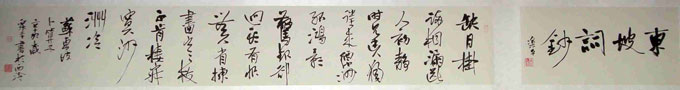 東坡詞鈔
缺月掛
疏桐漏斷
人初靜
時見幽人
獨往來縹緲
孤鴻影
驚起卻
回頭有恨
無人省揀
盡寒枝
不肯棲寂
寞沙
洲冷
蘇東坡
卜算子